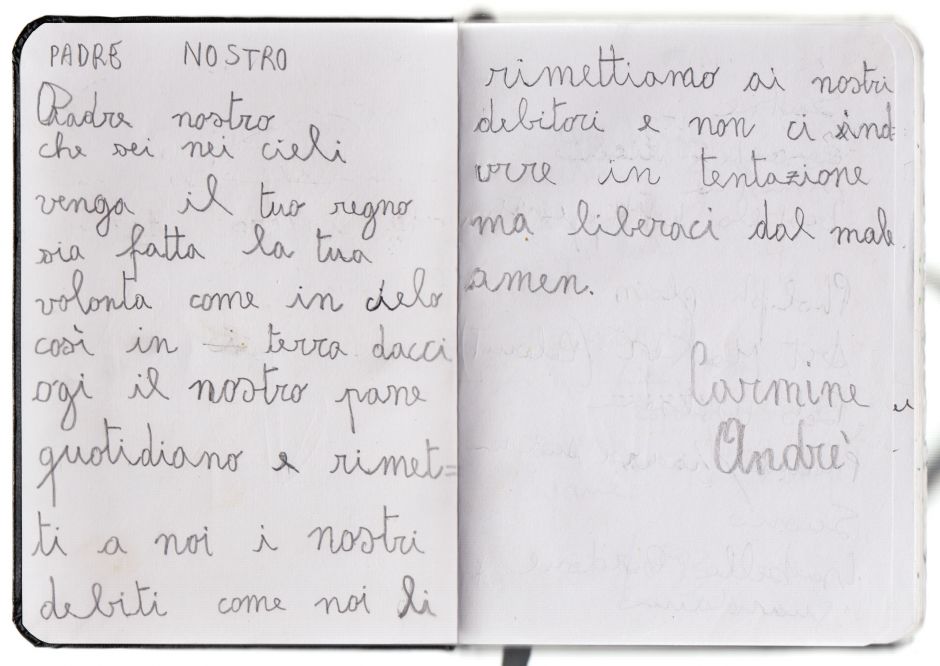 PADRE NOSTRO
Padre nostro
che sei nei cieli
venga il tuo regno
sia fatta la tua
volonta come in cielo
così in terra dacci
ogi il nostro pane
quotidiano e rimet=
ti a noi i nostri
debiti come noi li
rimettiamo ai nostri
debitori e non ci ind=
urre in tentazione
ma liberaci dal male
amen.
Carmine e
Andrè